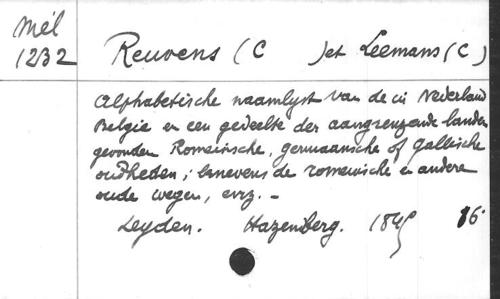 Mél
1232
Reuvens (C )et Leemans (C)
Alphabetische naamlyst van de in Nederland
Belgie en een gedeelte der aangrenzende landen
gevonden Romeinsche, germaansche of Gallische
oudheden, ; benevens de romeinsche en andere
oude wegen, enz. -
Leyden. Hazenberg. 1845 16°